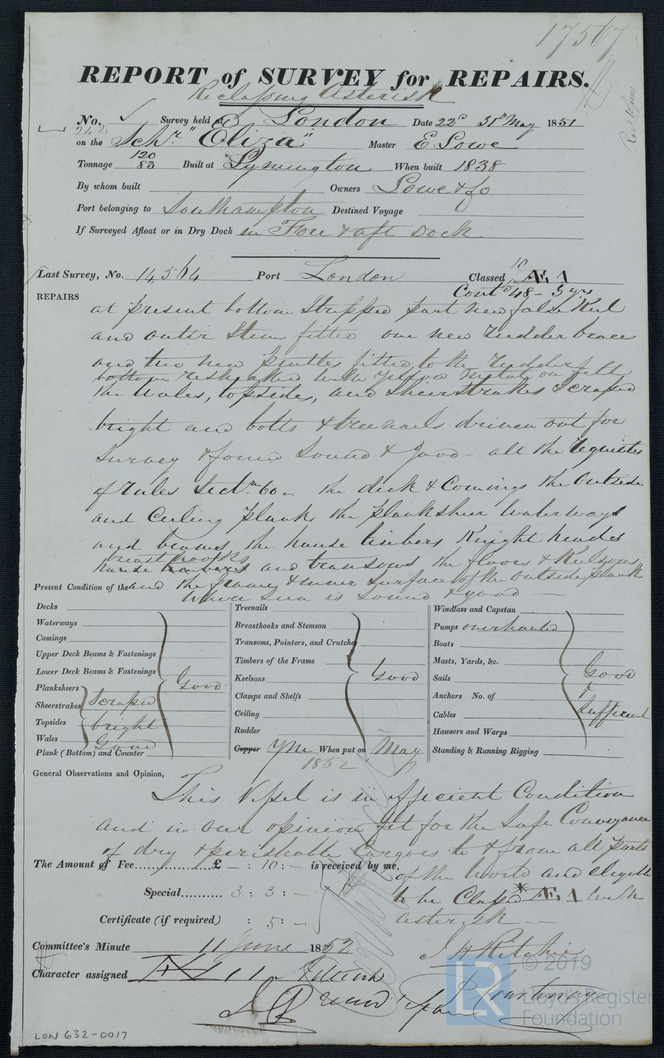 17567
REPORT of SURVEY for REPAIRS.
Reclassing Asterisk
No. 242 Survey held at London Date 22d 31st May 1851
on the Schr "Eliza" Master E Lowe
Tonnage 120 83 Built at Lymington When built 1838
By whom built Owners Lowe & Co
Port belonging to Southampton Destined Voyage
If Surveyed Afloat or in Dry Dock in Fore & aft Dock
Last Survey, No. 14564 Port London Classed 10 Æ A
Contd 48 - 5 yrs
REPAIRS
at present bottom Stripped part new false Keel
and outer Stem fitted one new rudder brace
and two new pintles fitted to the rudder
bottom resheathed with yellow metal on felt
the Wales, topsides, and sheerstrakes Scraped
bright and bolts & treenails driven out for
Survey & found Sound & Good - all the requisites
of Rules Sectn 60 - the deck & Comings the outside
and Ceiling planks the planksheer waterways
and beams, the hawse timbers Knight heads
breasthooks and transoms the floors & Keelsons
Present Condition of the and the frame & inner surface of the outside plank
where seen is sound & good
Decks
Waterways
Comings
Upper Deck Beams & Fastenings
Lower Deck Beams & Fastenings
Planksheers
Sheerstrakes
Topsides
Wales
Plank (Bottom) and Counter
Good
Scraped
bright
Good
Treenails
Breasthooks and Stemson
Transoms, Pointers, and Crutches
Timbers of the Frame
Keelsons Good
Clamps and Shelfs
Ceiling
Rudder
Copper YM When put on May
1852
Windlass and Capstan
Pumps overhauled
Boats
Masts, Yards, &c.
Sails
Anchors No. of
Cables
Hawsers and Warps
Standing & Running Rigging
Good
&
Sufficient
General Observations and Opinion,
This Vessel is in efficient Condition
and in our opinion fit for the Safe Conveyance
of dry & perishable Cargoes to & from all parts
The Amount of Fee £ - : 10 : - is received by me, of the World and eligible
Special 3 : 3 : - to be Classed * Æ A with
Certificate (if required) : 5 : - asterisk
Committee's Minute 11 June 1852 J H Ritchie
Character assigned Æ 1
© 2019
LR Lloyd's Register
Foundation
LON 632-0017